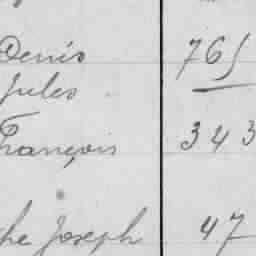 Denis 765
Jules
François 343
the Joseph 47